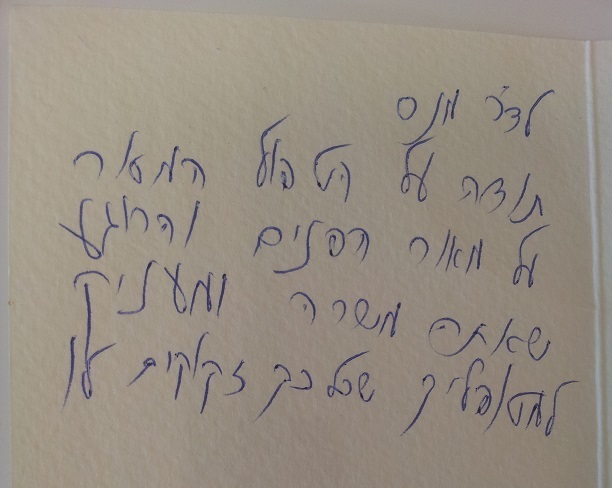 לד"ר מנס
תודה על הטיפול המסור
על מאור הפנים והרוגע
שאתה משרה ומעניק
למטופליך שכל כך זקוקים לו